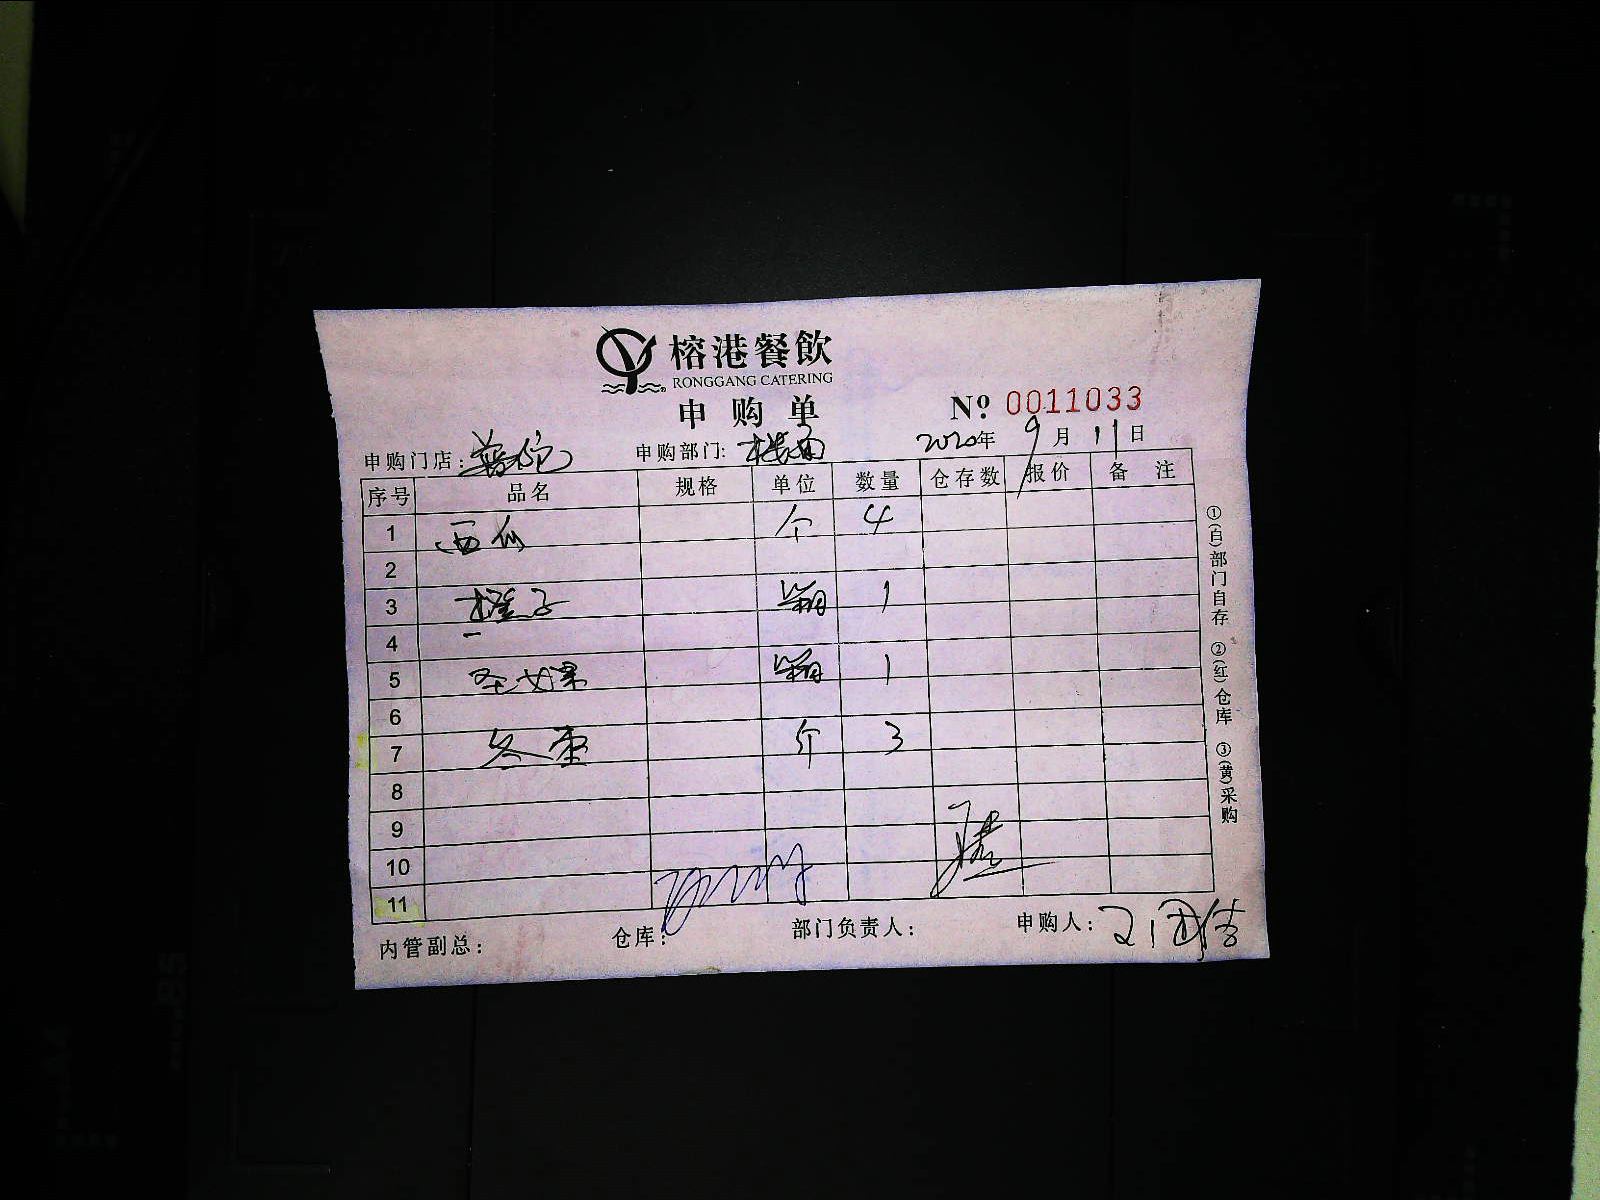 榕港餐飲
RONGGANG CATERING
申购单
№ 0011033
申购门店：普陀 申购部门：楼面 2020年9月11日
序号 品名 规格 单位 数量 仓存数 报价 备注
1 西瓜 个 4
2
3 橙子 箱 1
4
5 圣女果 箱 1
6
7 冬枣 斤 3
8
9
10
11
内管副总： 仓库： 部门负责人： 申购人：
①(白)部门自存 ②(红)仓库 ③(黄)采购